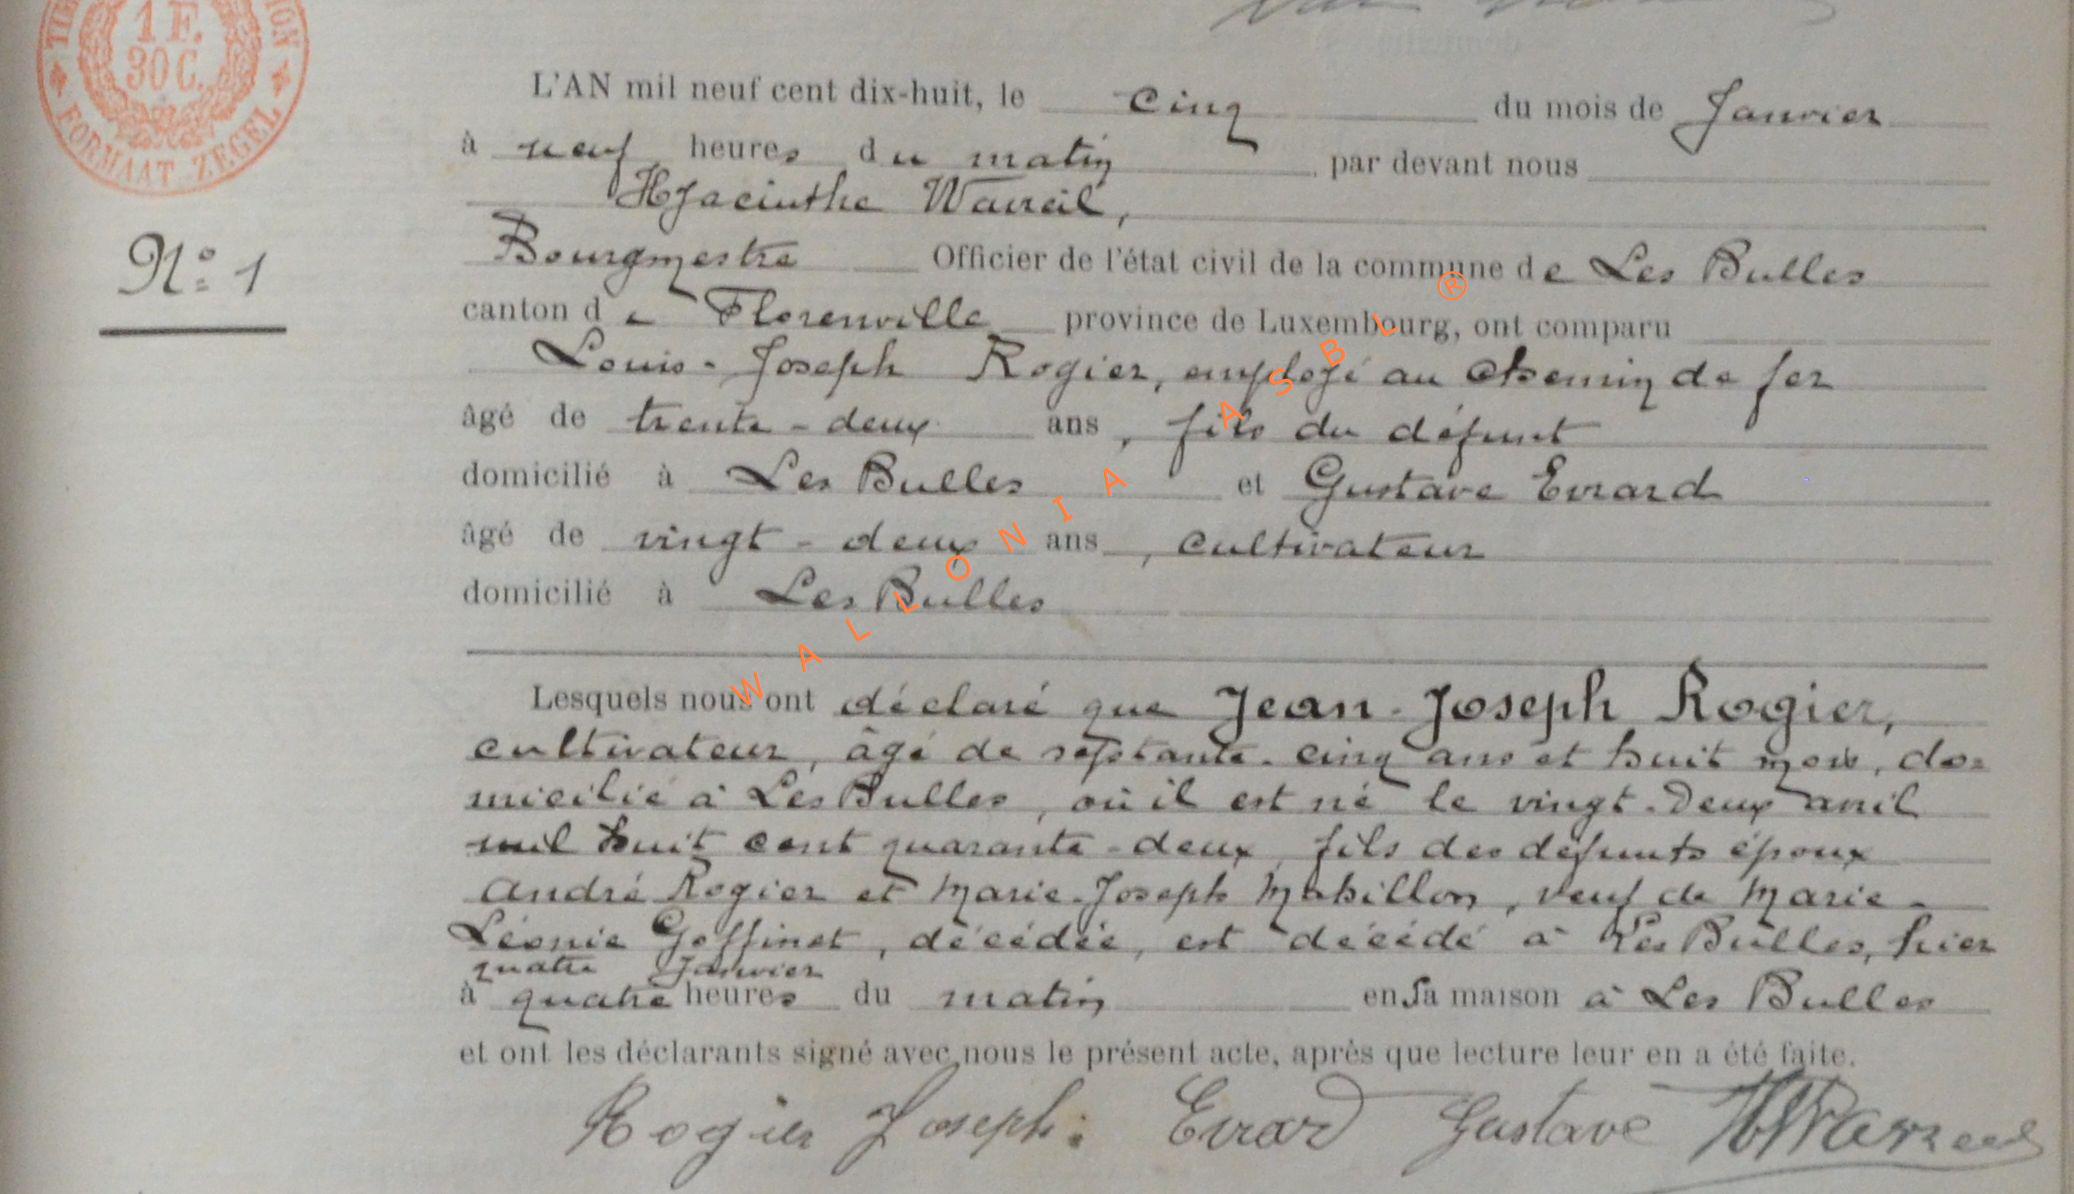 1 F.
30 C.
FORMAAT ZEGEL
N° 1
L'AN mil neuf cent dix-huit, le cinq du mois de Janvier
à neuf heures du matin par devant nous
Hyacinthe
Bourgmestre Officier de l'état civil de la commune de Les Bulles
canton de Florenville province de Luxembourg, ont comparu
Louis-Joseph Rogier, employé au chemin de fer
âgé de trente-deux ans, fils du défunt
domicilié à Les Bulles et Gustave Evrard
âgé de vingt-deux ans, cultivateur
domicilié à Les Bulles
WALLONIA ASBL ®
Lesquels nous ont déclaré que Jean-Joseph Rogier,
cultivateur, âgé de septante-cinq ans et huit mois, do=
micilié à Les Bulles, où il est né le vingt-deux avril
mil huit cent quarante-deux, fils des défunts époux
André Rogier et Marie-Joseph Mabillon, veuf de Marie-
Léonie Goffinet, décédée, est décédé à Les Bulles, hier
quatre Janvier
à quatre heures du matin en sa maison à Les Bulles
et ont les déclarants signé avec nous le présent acte, après que lecture leur en a été faite.
Rogier Joseph. Evrard Gustave